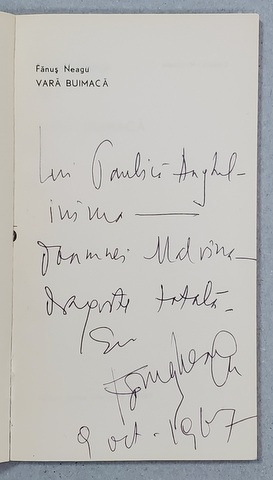 Fănuș Neagu
VARĂ BUIMACĂ
Lui Paulică Anghel –
inima —
doamnei Malvina –
dragoste totală –
Eu
FăNeagu
9 oct. 1967